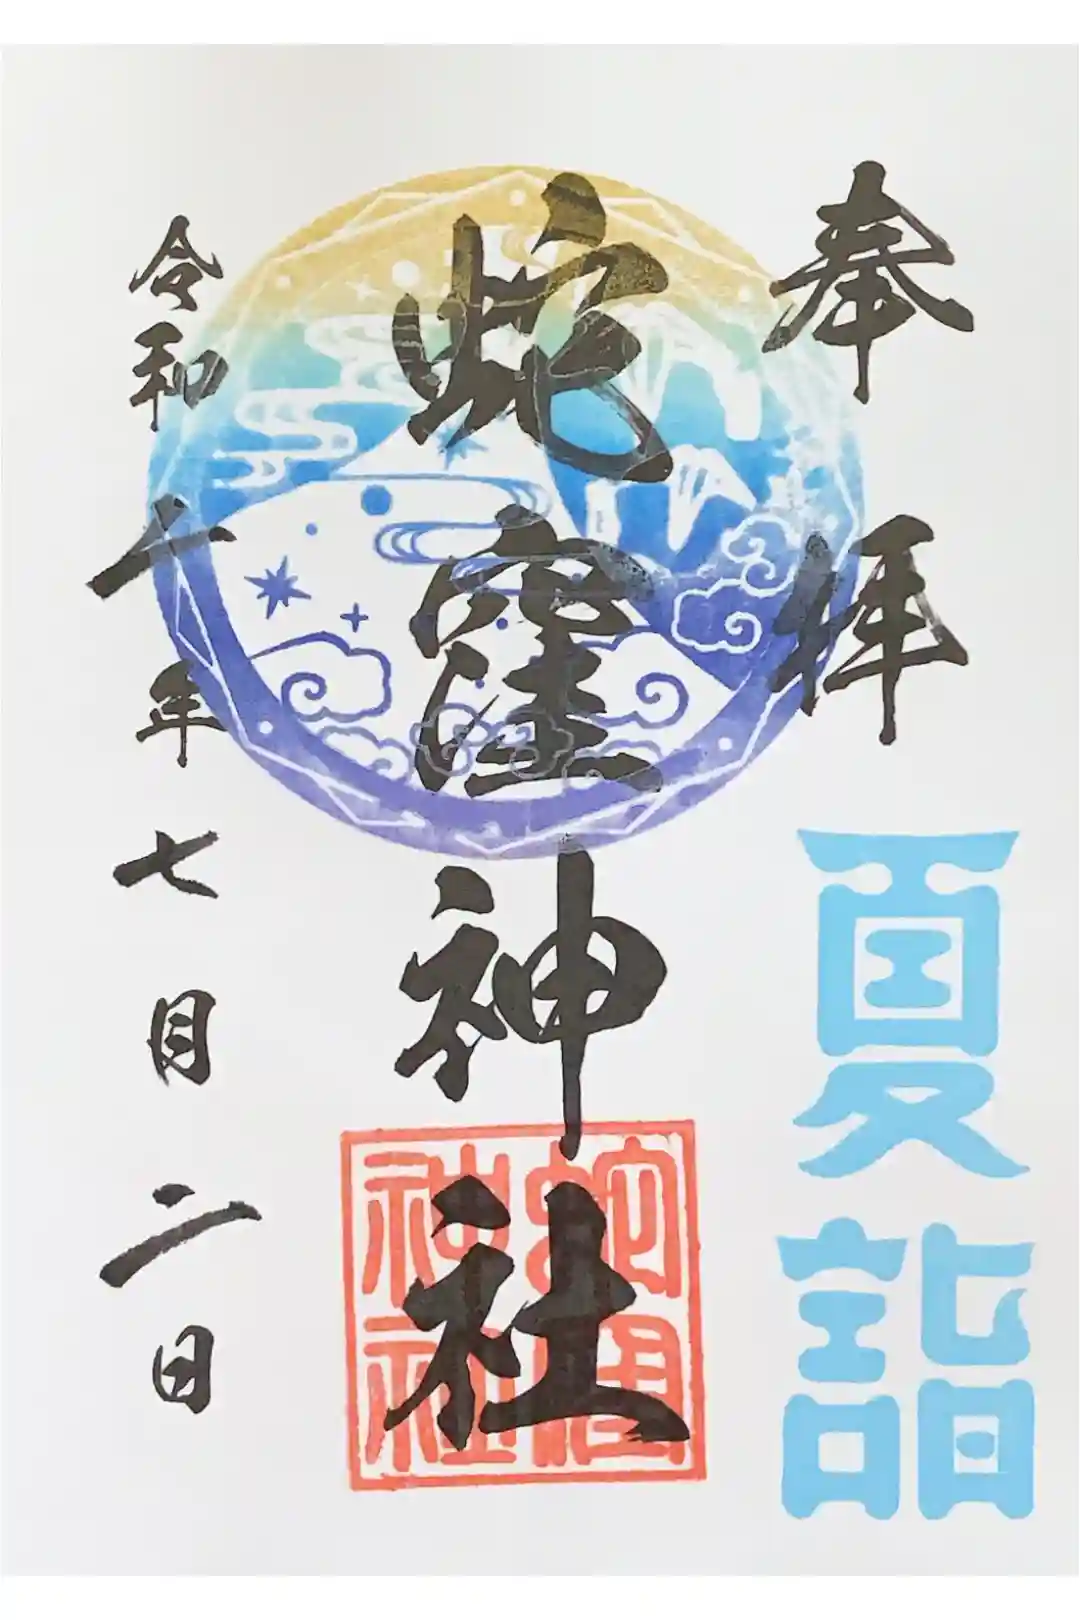 奉拝
夏詣
蛇窪神社
蛇窪
神社
令和六年七月二日